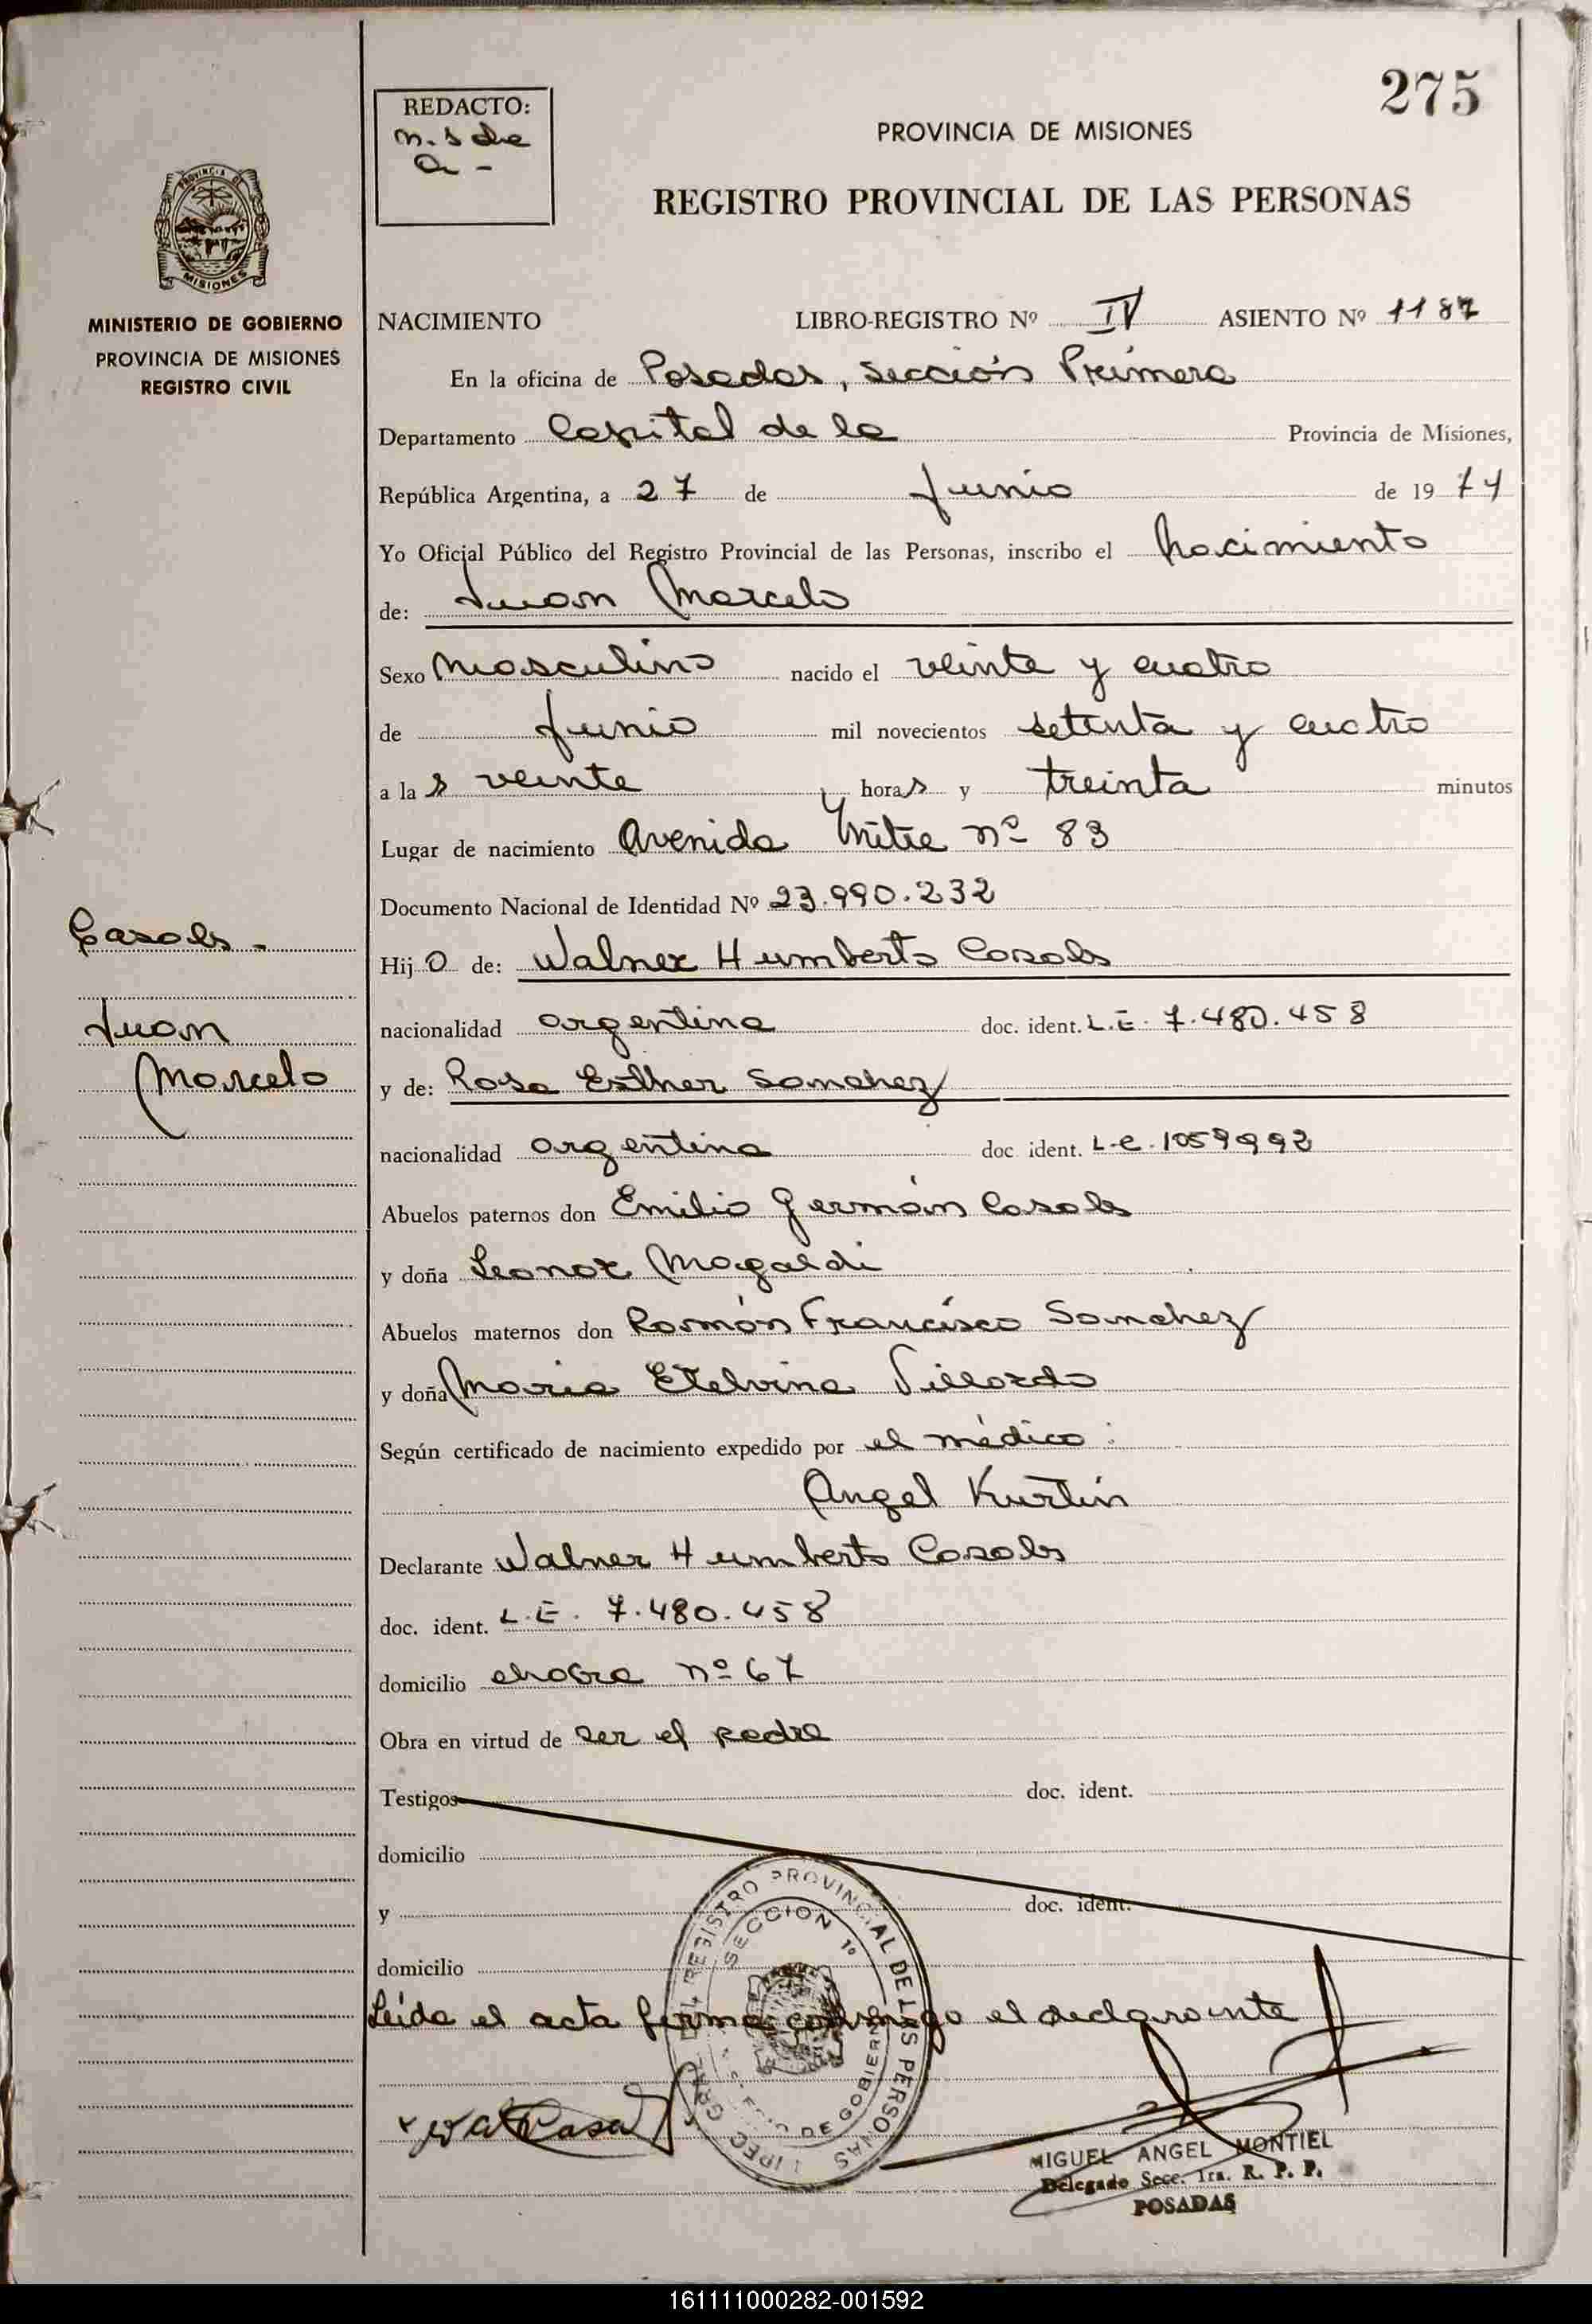 275
REDACTO:
PROVINCIA DE MISIONES
REGISTRO PROVINCIAL DE LAS PERSONAS
PROVINCIA DE
MISIONES
MINISTERIO DE GOBIERNO
PROVINCIA DE MISIONES
REGISTRO CIVIL
NACIMIENTO LIBRO-REGISTRO Nº IV ASIENTO Nº 1187
En la oficina de Posadas, sección Primera
Departamento Capital de la Provincia de Misiones,
República Argentina, a 27 de Junio de 1974
Yo Oficial Público del Registro Provincial de las Personas, inscribo el nacimiento
de: Juan Marcelo
Sexo masculino nacido el veinte y cuatro
de Junio mil novecientos setenta y cuatro
a las veinte horas y treinta minutos
Lugar de nacimiento Avenida Mitre nº 83
Documento Nacional de Identidad Nº 23.990.232
Hijo de: Walner Humberto Casals
nacionalidad argentina doc. ident. L.E. 7.480.458
y de: Rosa Esther Sanchez
nacionalidad argentina doc ident. L.C. 1059992
Abuelos paternos don Emilio Germán Casals
y doña Leonor Magaldi
Abuelos maternos don Ramón Francisco Sanchez
y doña Maria Etelvina
Según certificado de nacimiento expedido por el médico:
Angel Kurtin
Declarante Walner Humberto Casals
doc. ident. L.E. 7.480.458
domicilio chacra nº 67
Obra en virtud de ser el padre
Testigos doc. ident.
domicilio
y doc. ident.
domicilio
Leída el acta firma conmigo el declarante
Casals
Juan
Marcelo
REGISTRO PROVINCIAL DE LAS PERSONAS
SECCION 1º
DE GOBIERNO
MIGUEL ANGEL MONTIEL
Delegado Secc. 1ra. R. P. P.
POSADAS
161111000282-001592